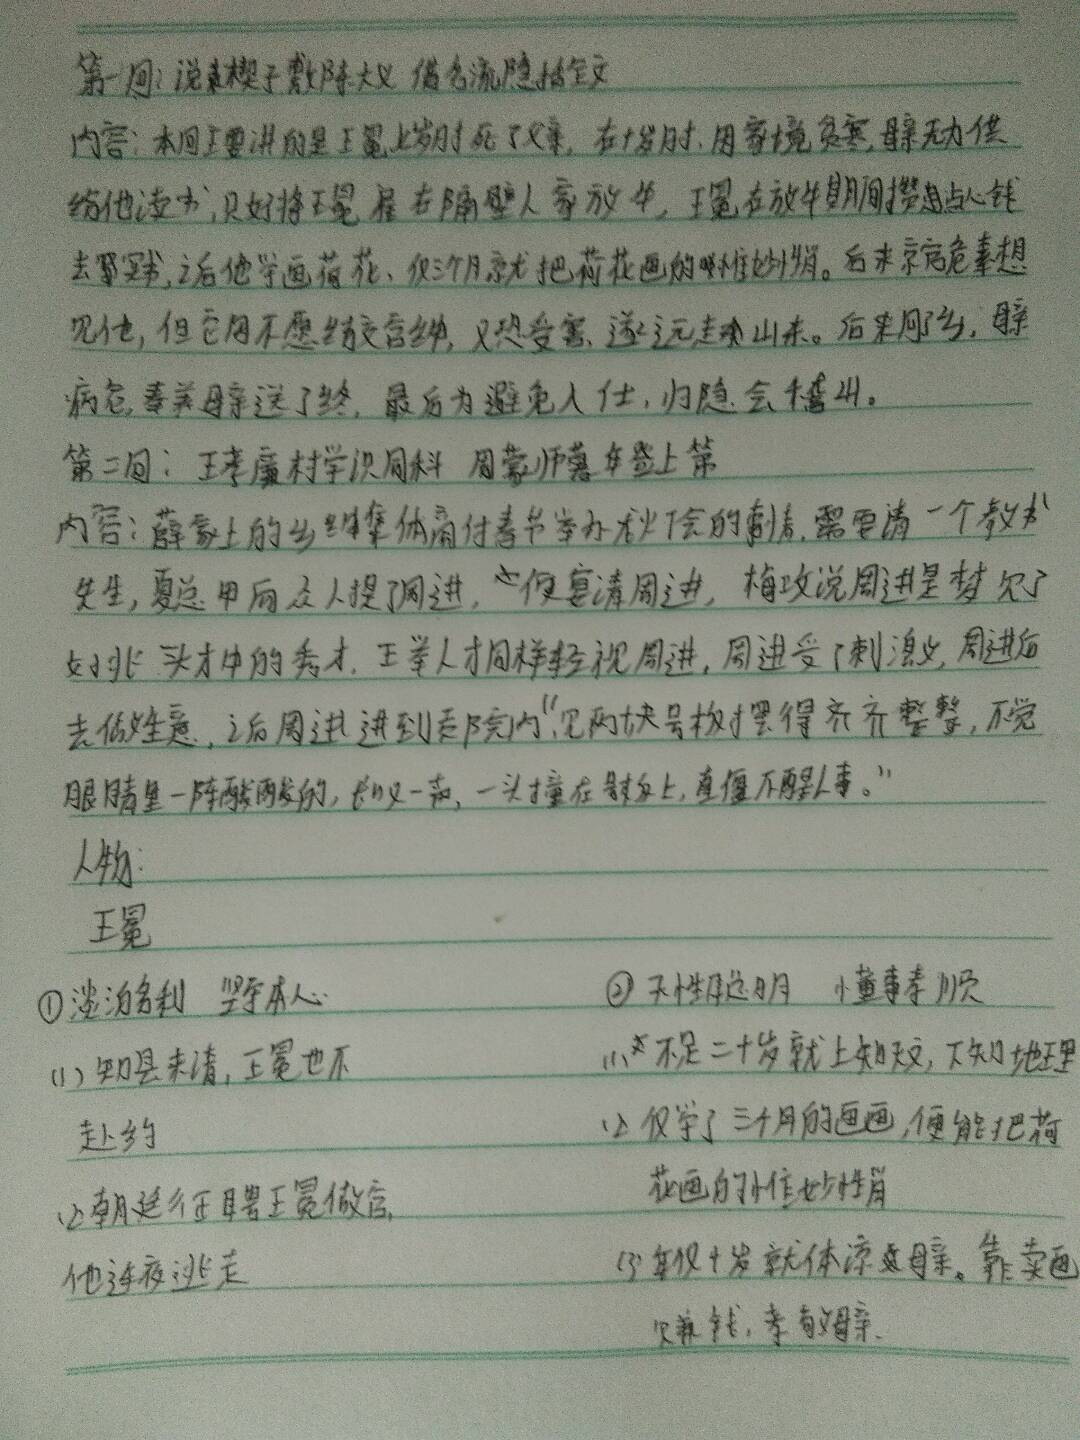 第一回：说楔子敷陈大义 借名流隐括全文
内容：本回主要讲的是王冕七岁时死了父亲，在十岁时，因家境贫寒，母亲无力供
给他读书，只好将王冕雇在隔壁人家放牛，王冕在放牛期间攒点心钱
去买书，之后他学画荷花，仅三个月就把荷花画的惟妙惟肖。后来京官危素想
见他，但它因不愿结交官绅，又恐受害，遂远走山东。后来回了乡，母亲
病危，奉养母亲送了终，最后为避免入仕，归隐会稽山。
第二回：王孝廉村学识同科 周蒙师暮年登上第
内容：薛家上的乡绅集体商付春节举办龙灯会的事情，需要请一个教书
先生，夏总甲向众人提了周进，便宴请周进，梅玖说周进是梦见了
才中的秀才，王举人才同样轻视周进，周进受了刺激，周进后
去做生意，之后周进进到贡院内“见两块号板摆得齐齐整整，不觉
眼睛里一阵酸酸的，长叹一声，一头撞在号板上，直僵不醒人事。”
人物：
王冕
①淡泊名利 坚守本心
②天性聪明 懂事孝顺
(1)知县来请，王冕也不
赴约
(2)朝廷征聘王冕做官，
他连夜逃走
(1)不足二十岁就上知天文，下知地理
(2)仅学了三个月的画画，便能把荷
花画的惟妙惟肖
(3)年仅十岁就体凉母亲。靠卖画
赚钱，孝敬母亲